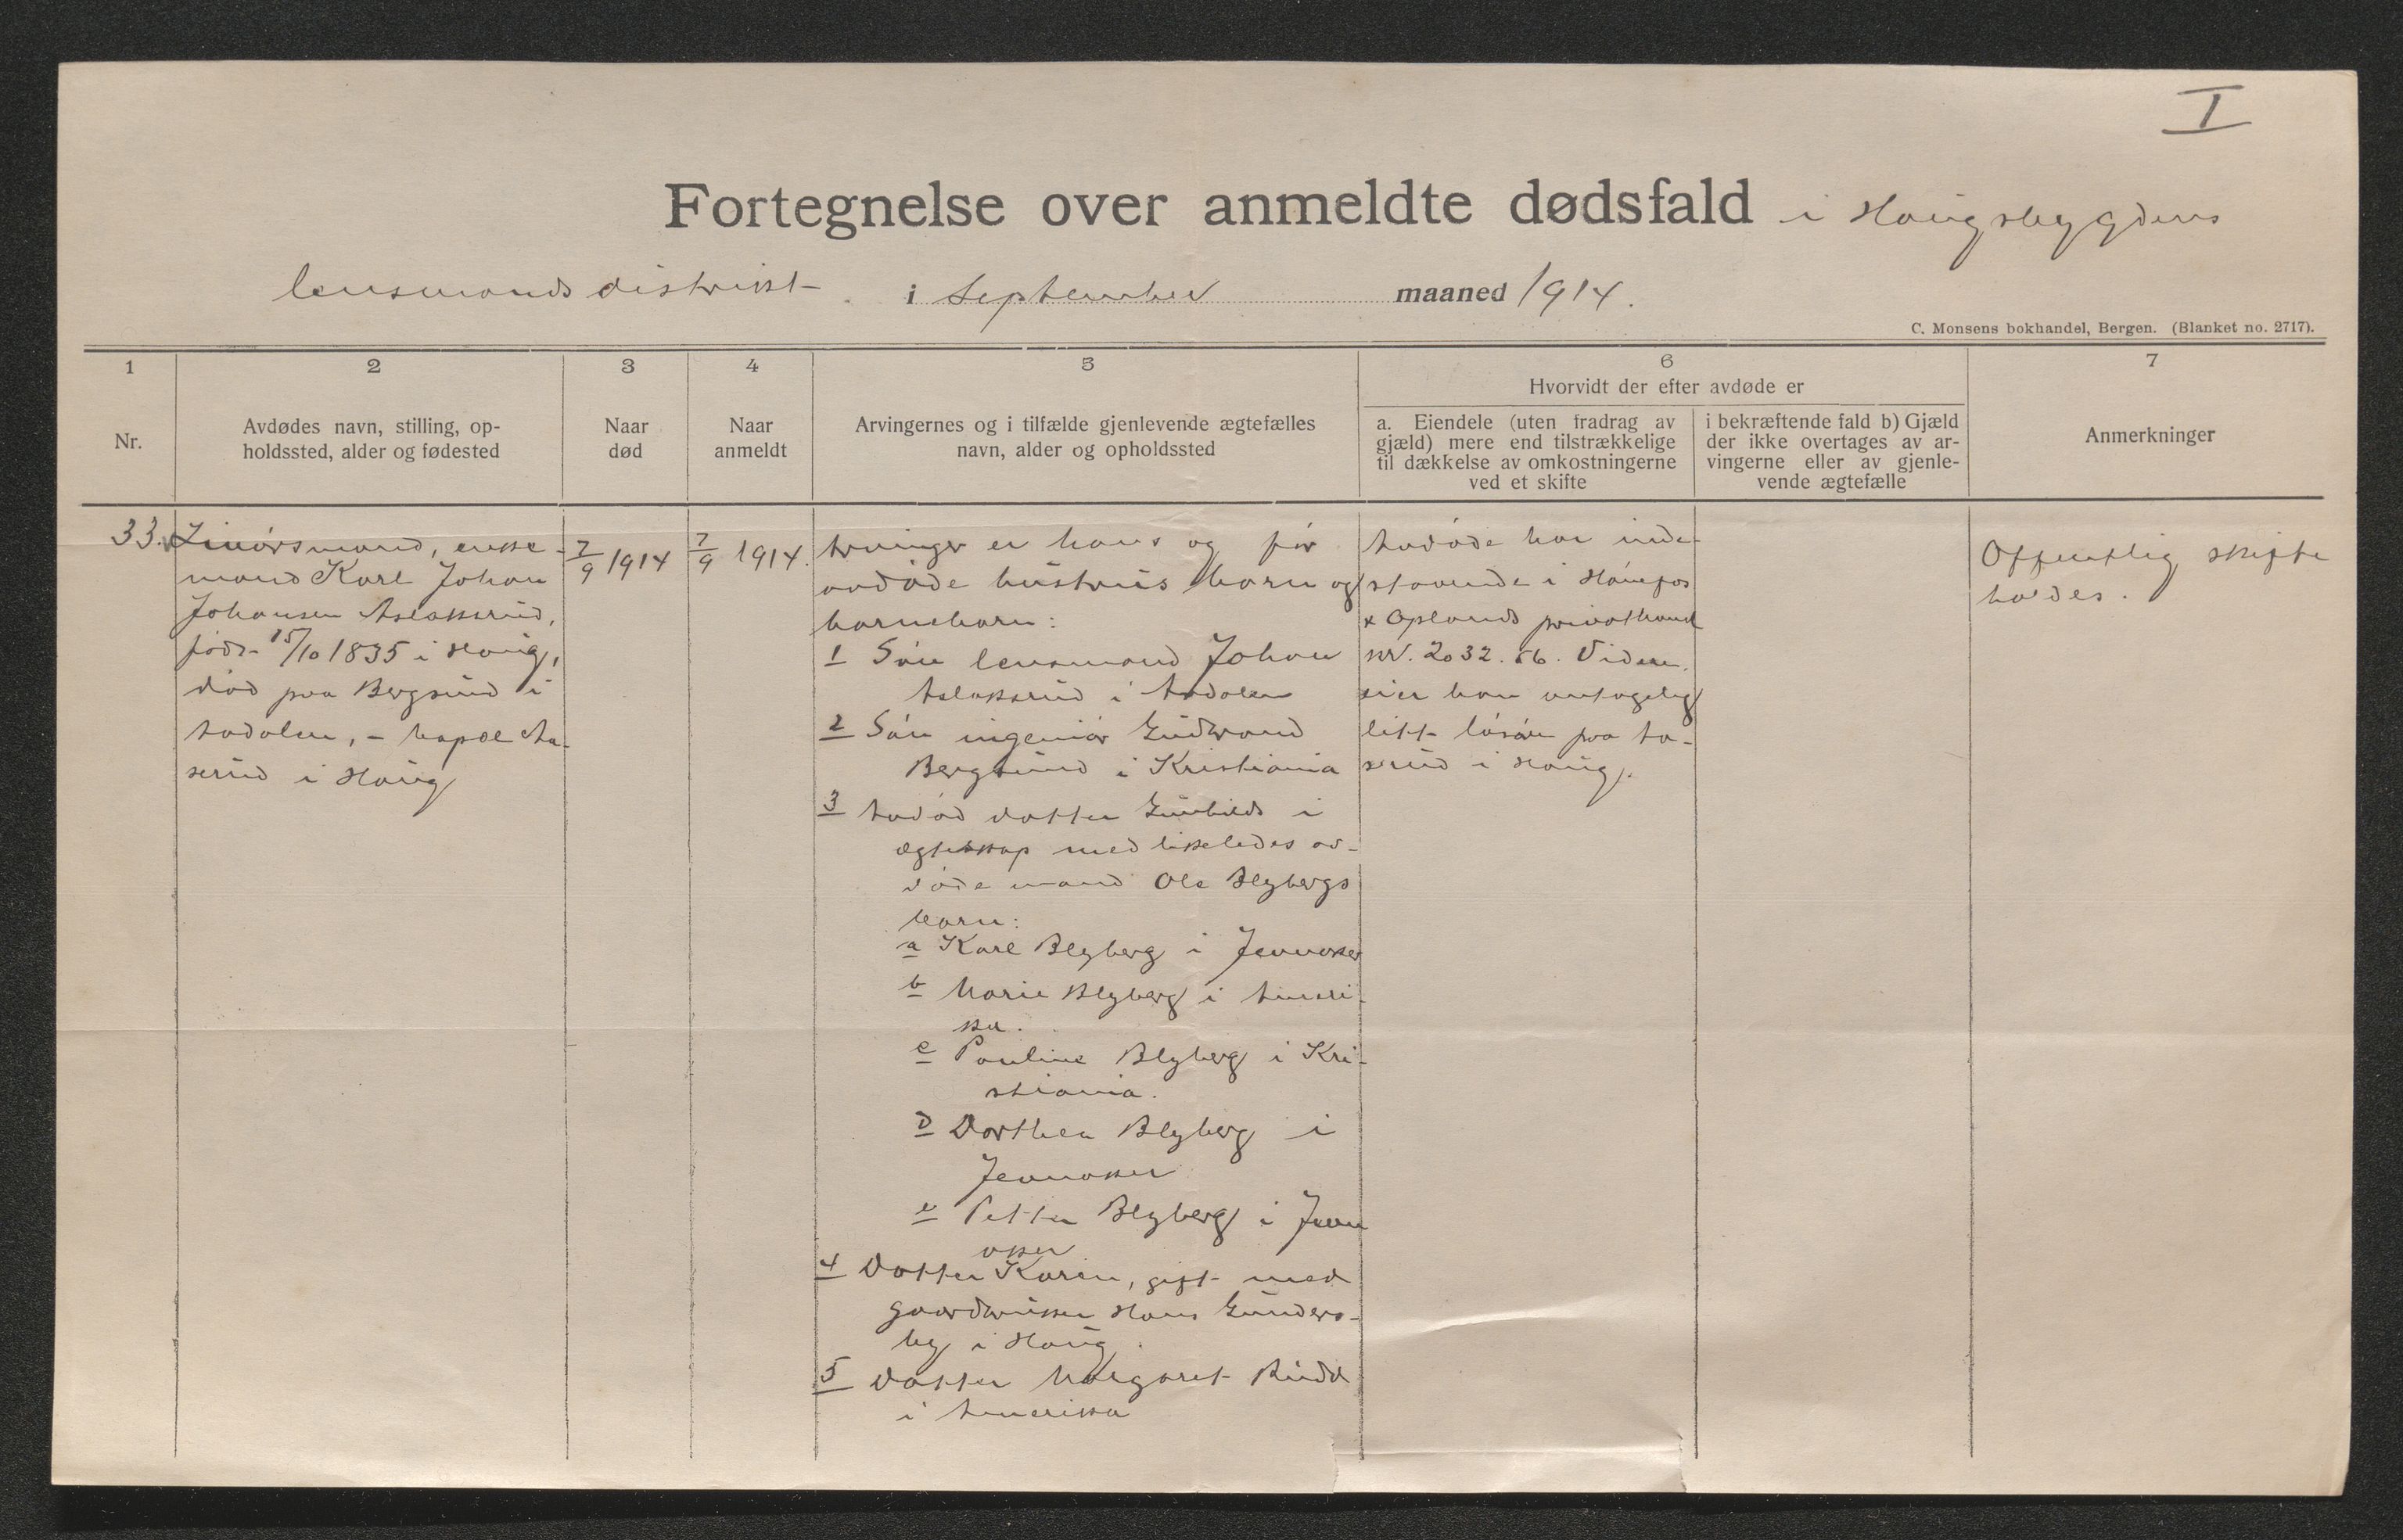 I
Fortegnelse over anmeldte dødsfald i Haugsbygdens
lensmandsdistrikt i September maaned 1914.
C. Monsens bokhandel, Bergen. (Blanket no. 2717).
1
2
3
4
5
6
7
Nr.
Avdødes navn, stilling, op-
holdssted, alder og fødested
Naar
død
Naar
anmeldt
Arvingernes og i tilfælde gjenlevende ægtefælles
navn, alder og opholdssted
Hvorvidt der efter avdøde er
a. Eiendele (uten fradrag av
gjæld) mere end tilstrækkelige
til dækkelse av omkostningerne
ved et skifte
i bekræftende fald b) Gjæld
der ikke overtages av ar-
vingerne eller av gjenle-
vende ægtefælle
Anmerkninger
33.
enke-
mand Karl Johan
Johansen Aslaksrud,
født 15/10 1835 i Haug,
død paa Bergsund i
Aadalen, - bopæl Aa-
serud i Haug
7/9 1914
7/9 1914.
Arvinger er hans og før
avdøde hustrus barn og
barnebarn:
1 Søn lensmand Johan
Aslaksrud i Aadalen
2 Søn ingeniør Gudbrand
Bergsund i Kristiania
3 Avdød datter Gunhilds i
ægteskap med likeledes av-
døde mand Ole Blybergs
barn:
a Karl Blyberg i Jevnaker
b Marie Blyberg i Ameri-
ka.
c Pauline Blyberg i Kri-
stiania.
d Dorthea Blyberg i
Jevnaker
e Petter Blyberg i Jevn
aker
4 Datter Karen, gift med
gaardbruker Hans Gunders-
by i Haug.
5 Datter Margaret Rudd
i Amerika
Avdøde har inde-
staaende i Hønefos
& Oplands privatbank
kr. 2032.56. Videre
eier han antagelig
litt løsøre paa Aa-
serud i Haug.
Offentlig skifte
holdes.